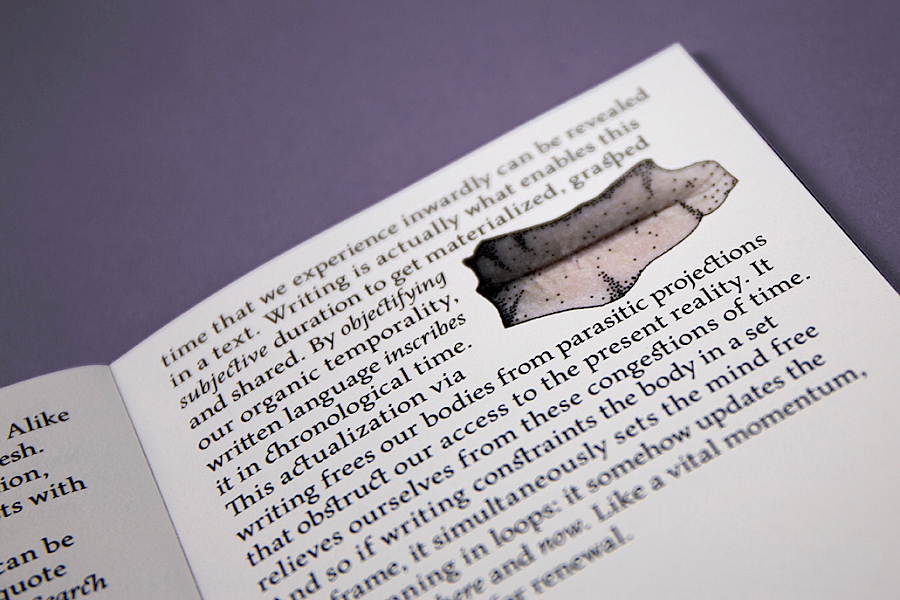 Alike
esh.
ion,
ts with
can be
quote
search
time that we experience inwardly can be revealed
in a text. Writing is actually what enables this
subjective duration to get materialized, grasped
and shared. By objectifying
our organic temporality,
written language inscribes
it in chronological time.
This actualization via
writing frees our bodies from parasitic projections
that obstruct our access to the present reality. It
relieves ourselves from these congestions of time.
And so if writing constraints the body in a set
frame, it simultaneously sets the mind free
aning in loops: it somehow updates the
here and now. Like a vital momentum,
for renewal.